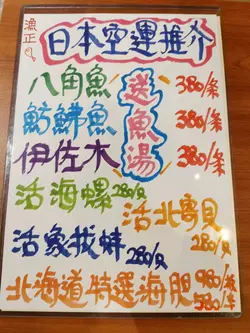 漁正
日本空運推介
八角魚 380/条
魴鮄魚 380/条
伊佐木 380/条
送魚湯
活海螺 280/只
活北寄貝 280/只
活象拔蚌 280/只
北海道特選海胆 980/板
580/半